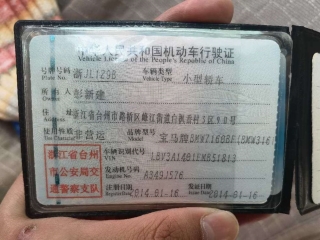 中华人民共和国机动车行驶证
Vehicle License of the People's Republic of China
号牌号码 浙JL1Z98 车辆类型 小型轿车
Plate No. Vehicle Type
所有人 彭新建
Owner
住址 浙江省台州市路桥区
Address
使用性质 非营运 品牌型号 宝马牌BMW7160BF(BMW316
Model
浙江省台州
市公安局交
通警察支队
车辆识别代号
VIN
发动机号码 A349J576
Engine No.
注册日期 2014-01-16 发证日期 2014-01-16